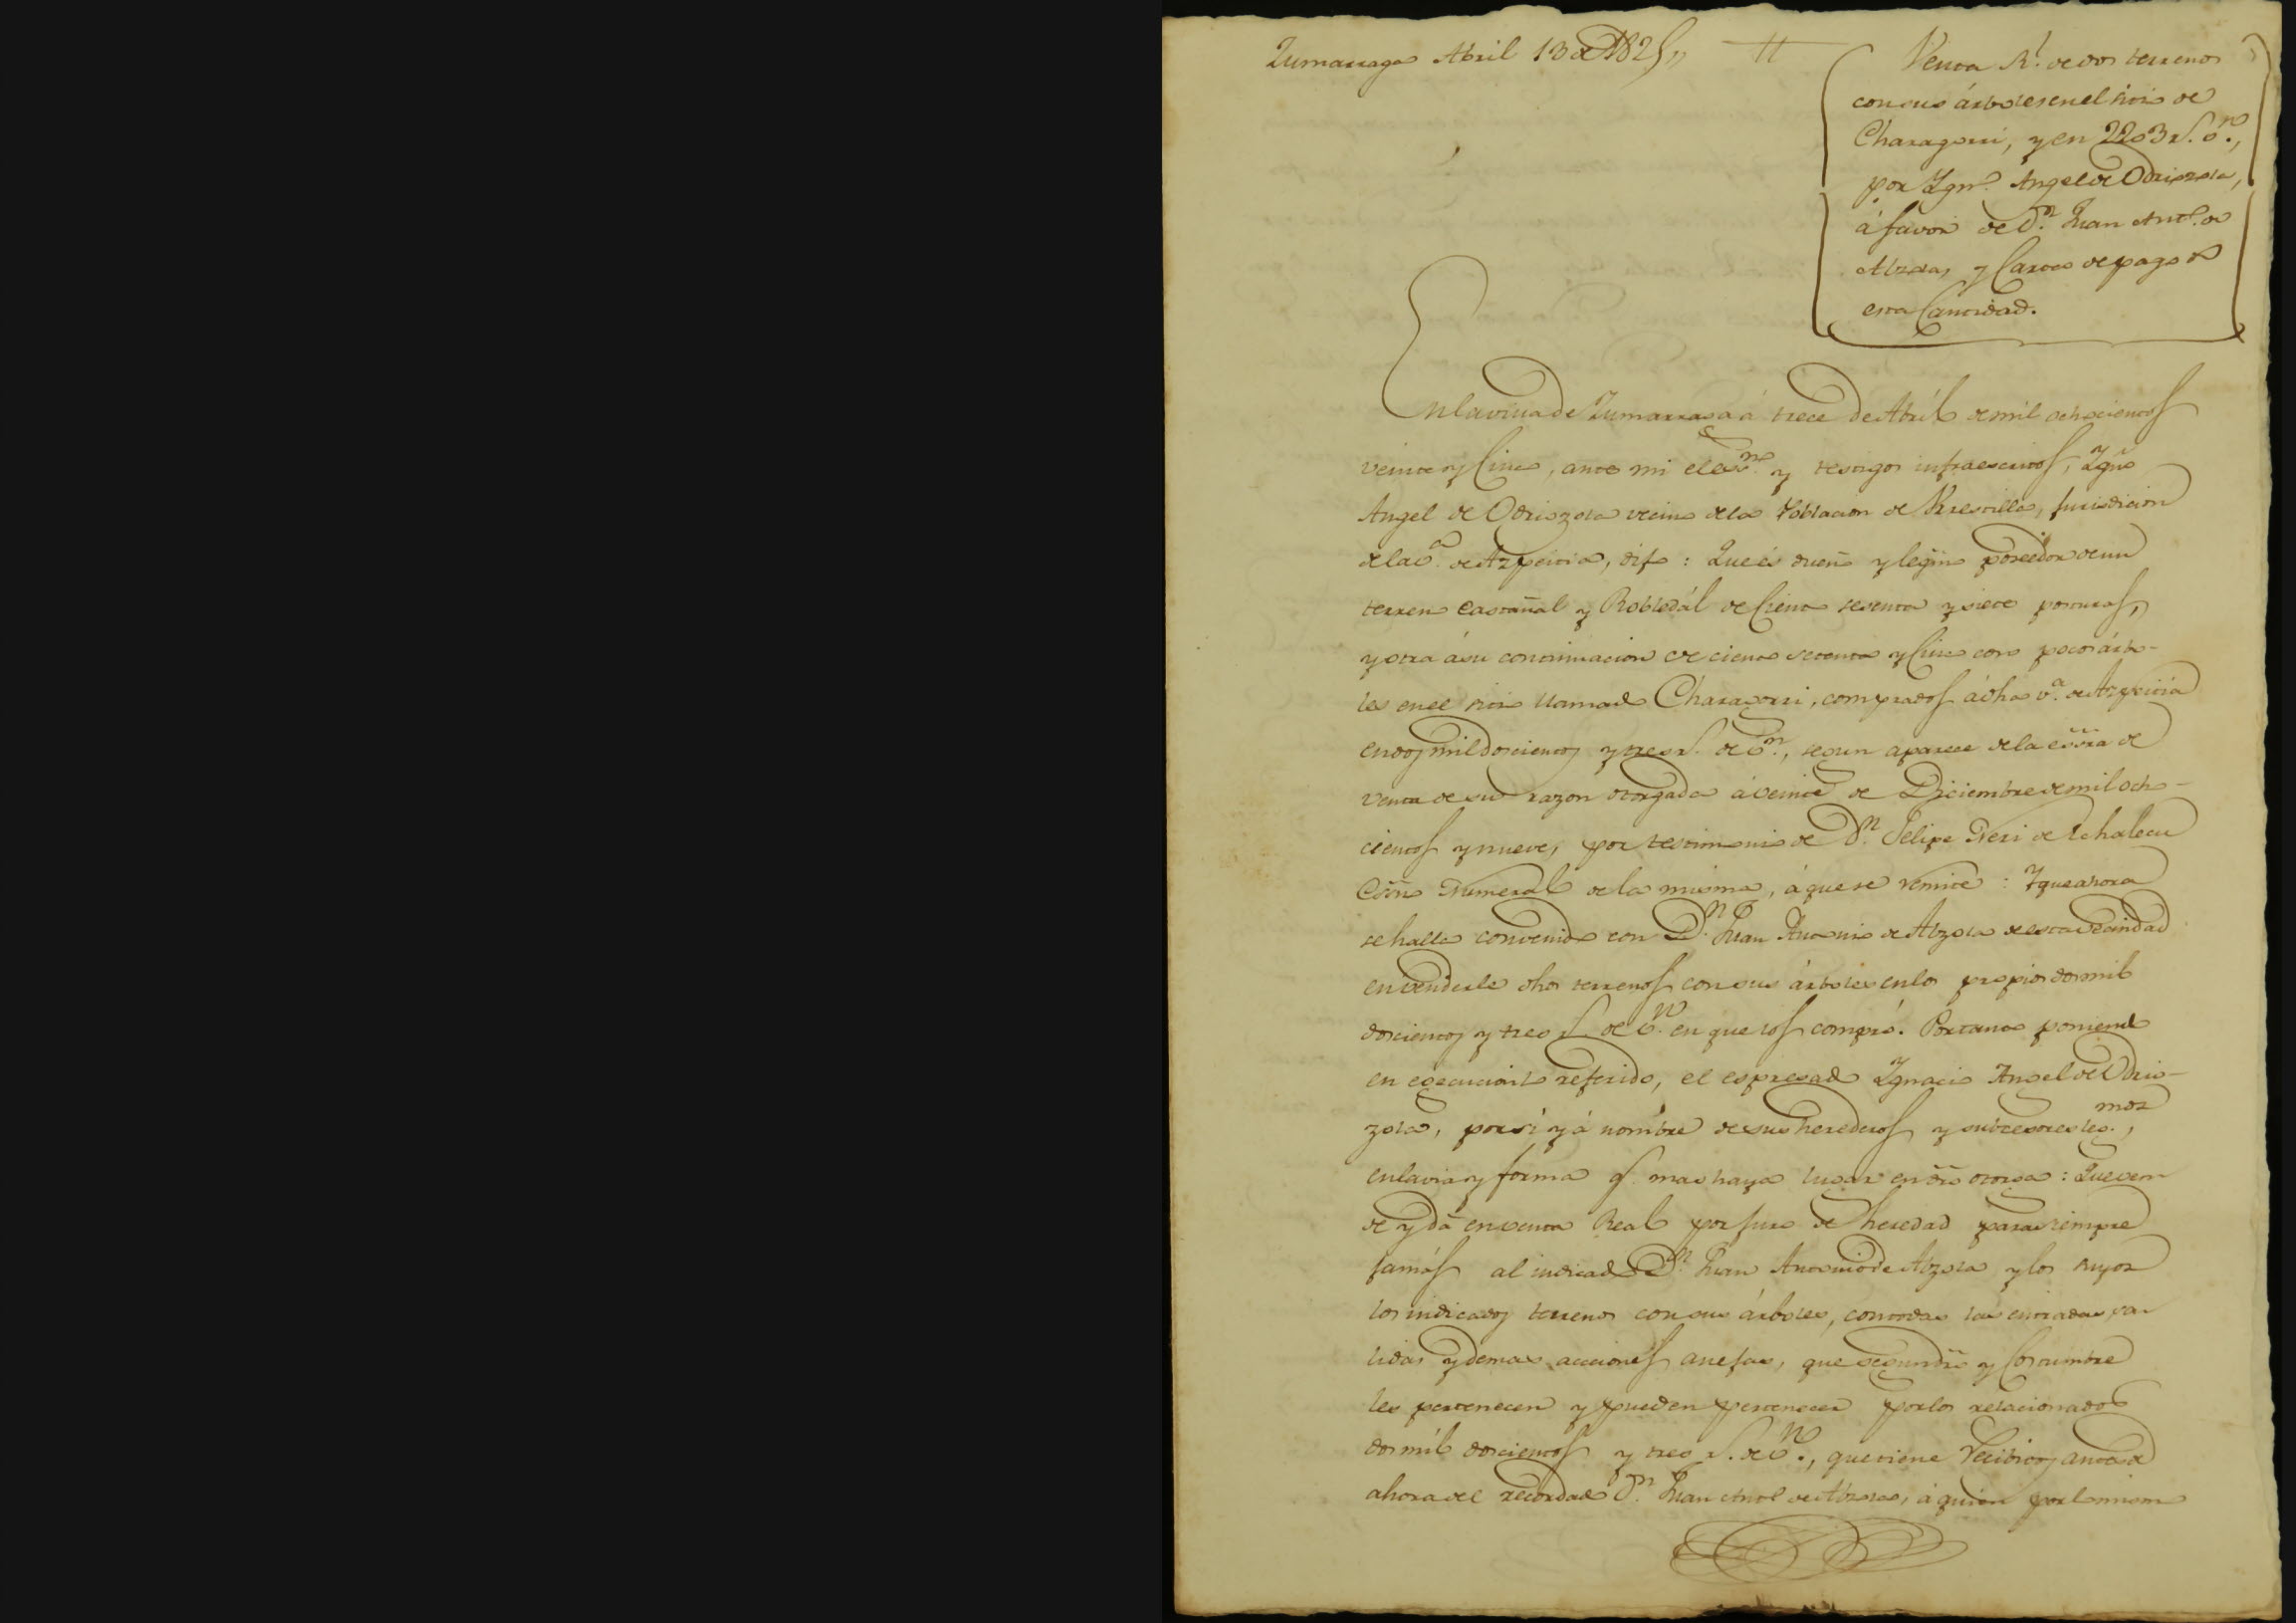 Zumarraga Abril 13 de 1825,,
Venta Rl. de dos terrenos
con sus árboles en el sitio de
Charagorri, y en 2203 rs. vn.,
por Ign.o Angel de Odriozola,
á favor de Dn. Juan Ant.o de
Alzola, y Carta de pago de
esta Cantidad.
En la villa de Zumarraga á trece de Abril de mil ochocientos
veinte y Cinco, ante mi el essno. y testigos infraescritos, Ygno.
Angel de Odriozola vecino de la Poblacion de Urrestilla, Jurisdicion
de la va. de Azpeitia, dijo: Que és dueño y legmo. poseedor de un
terreno Castañal y Robledál de Ciento sesenta y siete posturas,
y otro á su continuacion de ciento setenta y Cinco con pocos árbo-
les en el sitio llamado Charagorri, comprados á dha va. de Azpeitia
en dos mil doscientos y tres rs. de vn., segun aparece de la essra. de
venta de su razon otorgada á veinte de Diciembre de mil ocho-
cientos y nueve, por testimonio de Dn. Felipe Neri de Ichalecu
Essno. Numeral de la misma, á que se remite: Y que ahora
se halla convenido con Dn. Juan Antonio de Alzola de esta vecindad
en venderle dhos terrenos con sus árboles en los propios dos mil
doscientos y tres rs. de vn. en que los compró. Por tanto poniendo
en egecucion lo referido, el espresado Ygnacio Angel de Odrio-
zola, por sí y á nombre de sus herederos y subcesores legmos.,
en la via y forma q. mas haya lugar en dro. otorga: Que ven-
de y dá en venta Real por juro de heredad para siempre
jamás al indicado Dn. Juan Antonio de Alzola y los suyos
los indicados terrenos con sus árboles, con todas las entradas, sa-
lidas y demas acciones anejas, que segun dro. y Costumbre
les pertenecen y pueden pertenecer por los relacionados
dos mil doscientos y tres rs. de vn., que tiene recibidos antes de
ahora del recordado Dn. Juan Anto. de Alzola, á quien por lo mismo